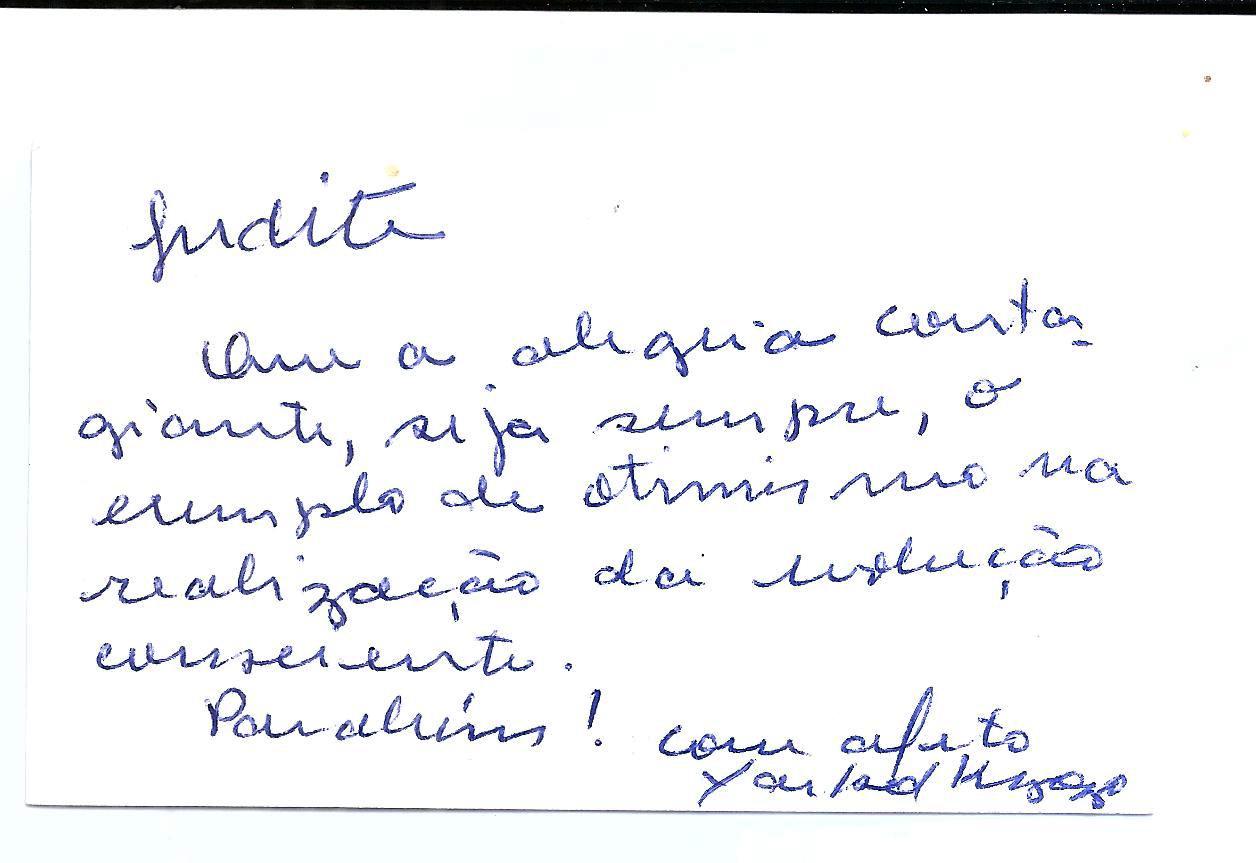 Judite
Que a alegria conta-
giante, seja sempre, o
exemplo de otimismo na
realização da evolução
consciente.
Parabéns! com afeto